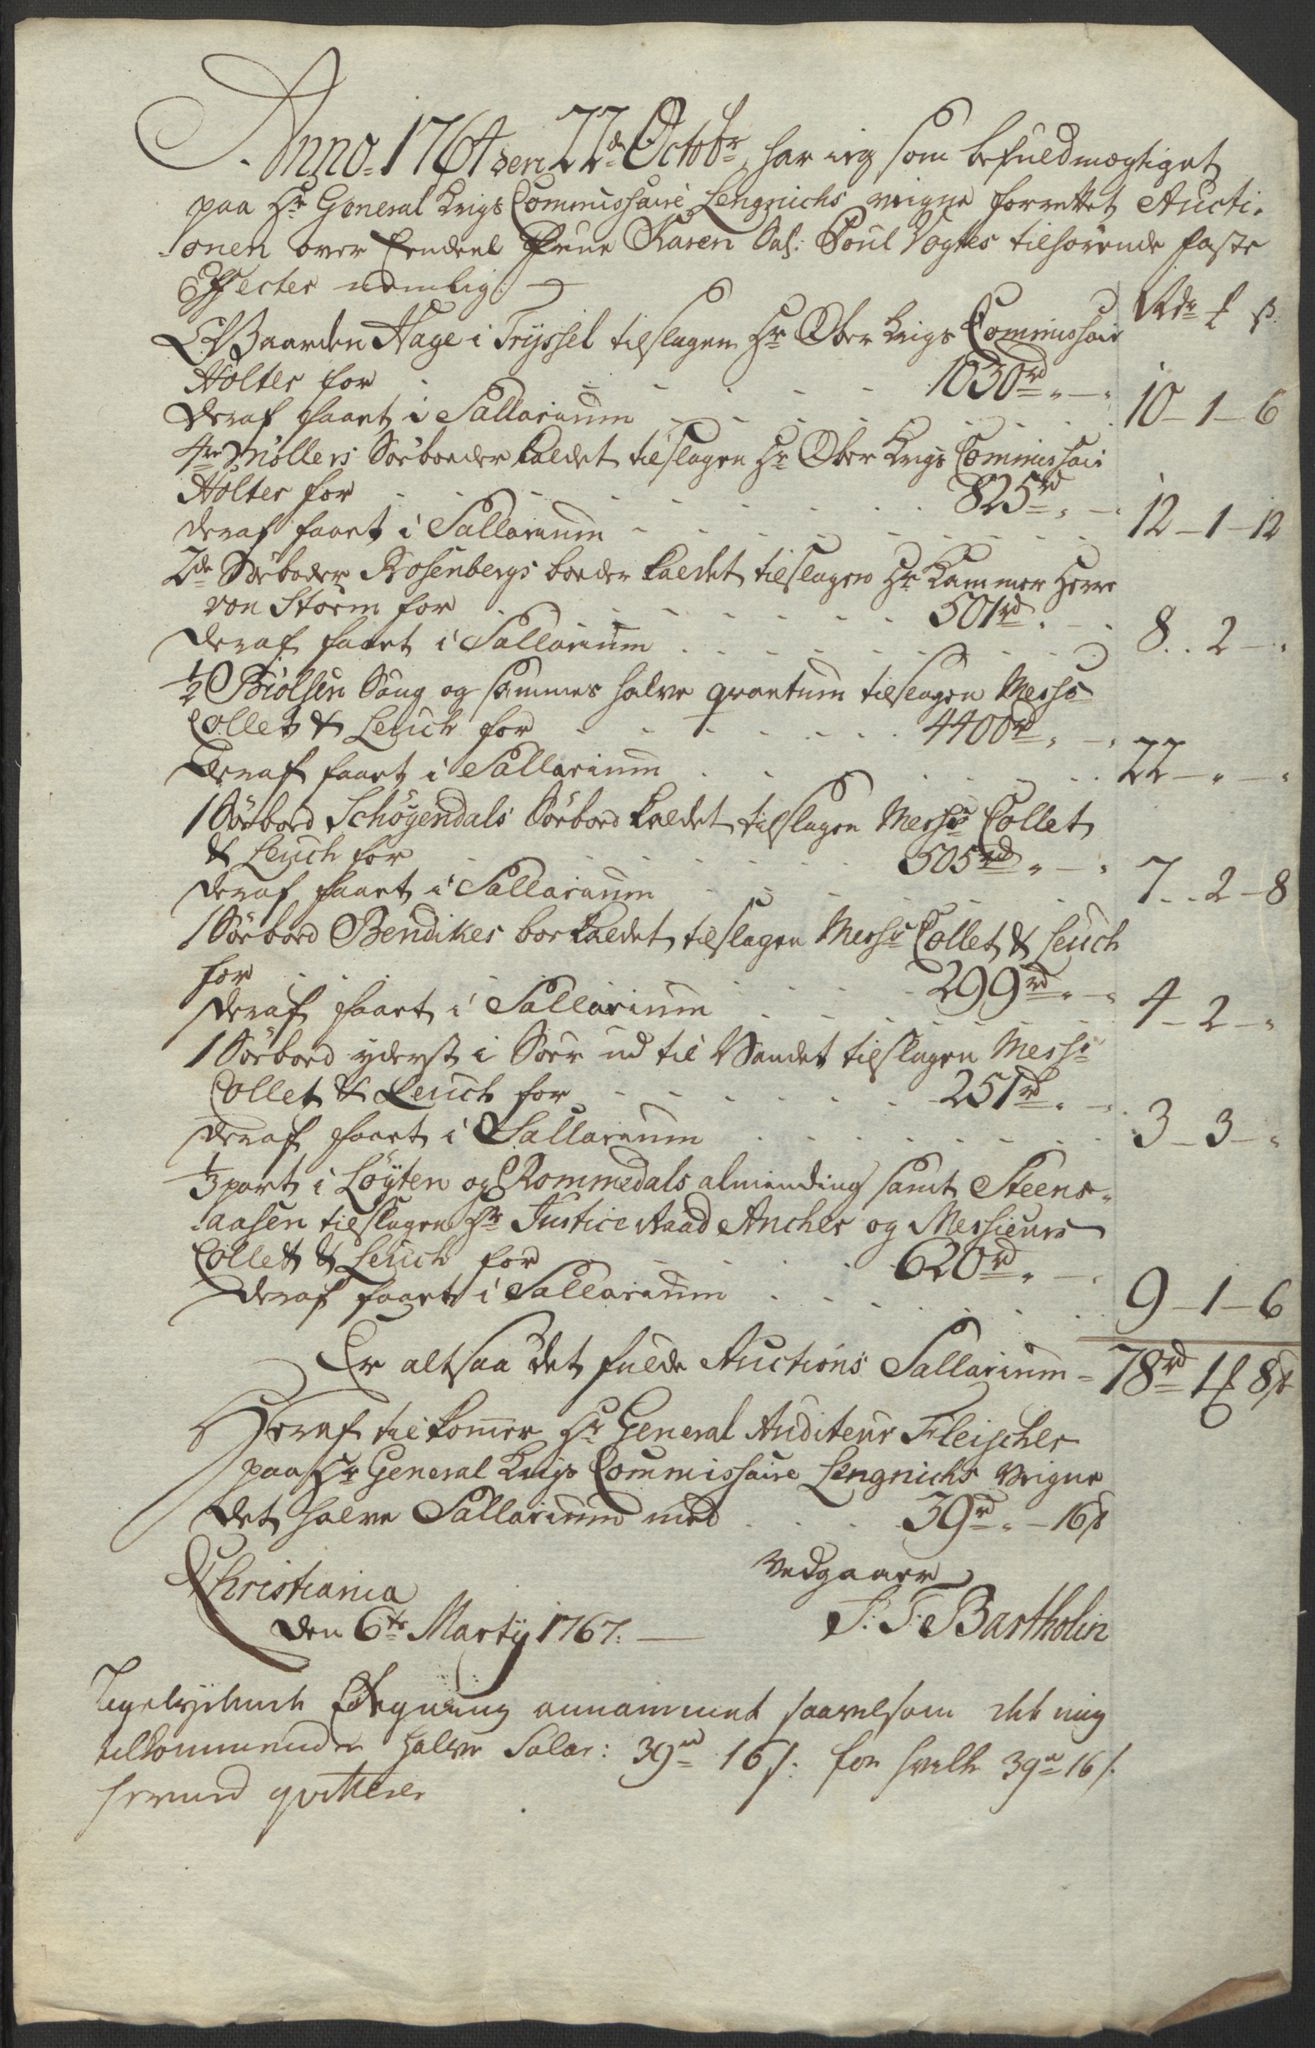 Anno 1764 den 22de Octobr har ieg som befuldmægtiget
paa Hr General Krigs Commissaire Lengnichs veigne forrettet Aucti-
onen over Eendeel Frue Karen Sal: Poul Vogtes tilhørende faste
Effecter nemlig:
Rdr ß
Gaarden Hage i Tryssel tilslagen Hr Ober Krigs Commissair
Holter for 1030rd " — "
deraf faaet i Sallarium 10 — 1 — 6
4re Møllers Søeboeder kaldet tilslagen Hr Ober Krigs Commissair
Holter for 825rd " — "
deraf faaet i Sallarium 12 — 1 — 12
2de Søeboder Rosenbergs boeder kaldet tilslagen Hr Kammer Herre
von Storm for 501rd " — "
deraf faaet i Sallarium 8 .. 2 — "
1/2 Biølsen Saug og sammes halve qvantum tilslagen Messrs
Collet & Leuch for 4400rd " — "
deraf faaet i Sallarium 22 — " — "
1 Søebod Schøyendals Søebod kaldet tilslagen Messrs Collet
& Leuch for 505rd " — "
deraf faaet i Sallarium 7 .. 2 — 8
1 Søebod Bendikes boe kaldet tilslagen Messrs Collet & Leuch
for 299rd " — "
deraf faaet i Sallarium 4 — 2 — "
1 Søebod yderst i Søer ud til Vandet tilslagen Messrs
Collet & Leuch for 251rd " — "
deraf faaet i Sallarium 3 — 3 — "
1/3 part i Løyten og Rommedals alminding samt Steens-
aasen tilslagen Hr Justice Raad Ancher og Messieurs
Collet & Leuch for 620rd " — "
deraf faaet i Sallarium 9 — 1 — 6
Er altsaa det fulde Auctions Sallarium - 78rd 1 8ß
Heraf tilkommer Hr General Auditeur Fleischer
paa Hr General Krigs Commissaire Lengnichs Veigne
det halve Sallarium med 39rd " — 16ß
Christiania vedgaaer
den 6te Martij 1767. — J: F: Bartholin
Regning annammet saavelsom det mig
tilkommende halve Salar: 39rd 16ß: for hvilke 39rd 16ß.
herved qvitterer